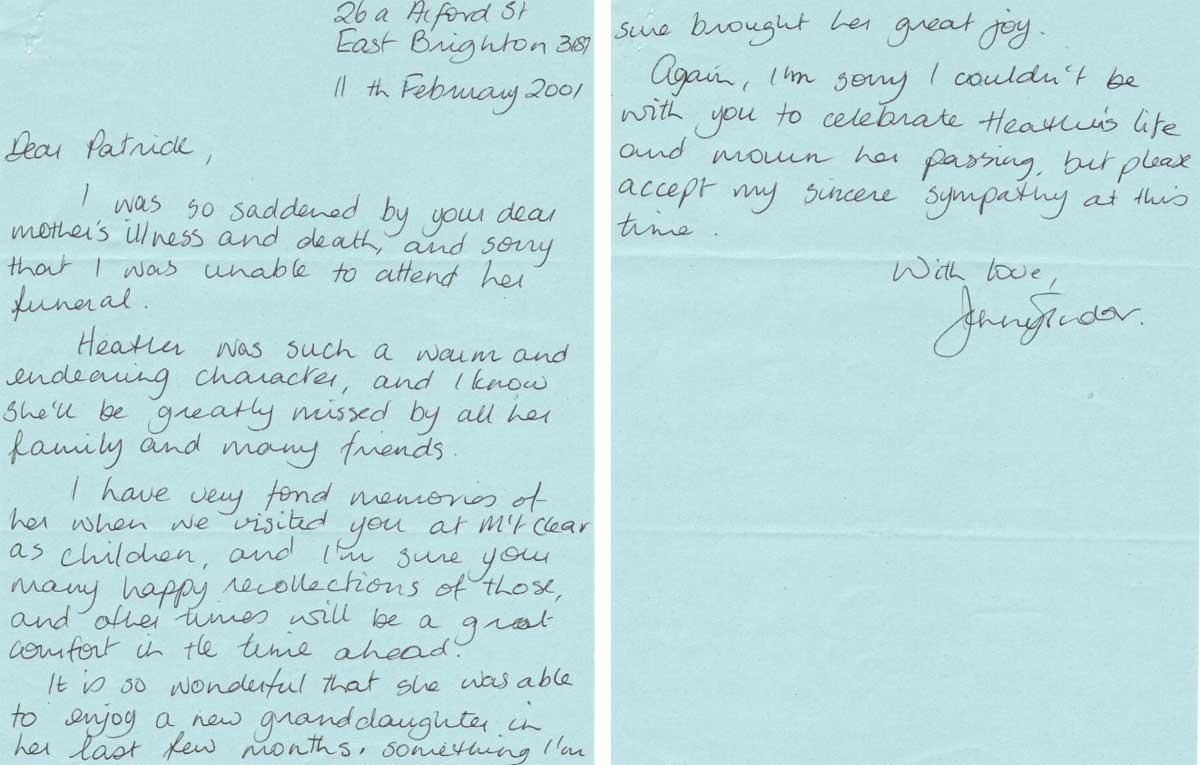 26a Alford St
East Brighton 3187
11 th February 2001
Dear Patrick,
I was so saddened by your dear
mother's illness and death, and sorry
that I was unable to attend her
funeral.
Heather was such a warm and
endearing character, and I know
she'll be greatly missed by all her
family and many friends.
I have very fond memories of
her when we visited you at M't Clear
as children, and I'm sure your
many happy recollections of those,
and other times will be a great
comfort in the time ahead.
It is so wonderful that she was able
to enjoy a new granddaughter in
her last few months. something I'm
sure brought her great joy.
Again, I'm sorry I couldn't be
with you to celebrate Heather's life
and mourn her passing, but please
accept my sincere sympathy at this
time.
With love,
Jenny